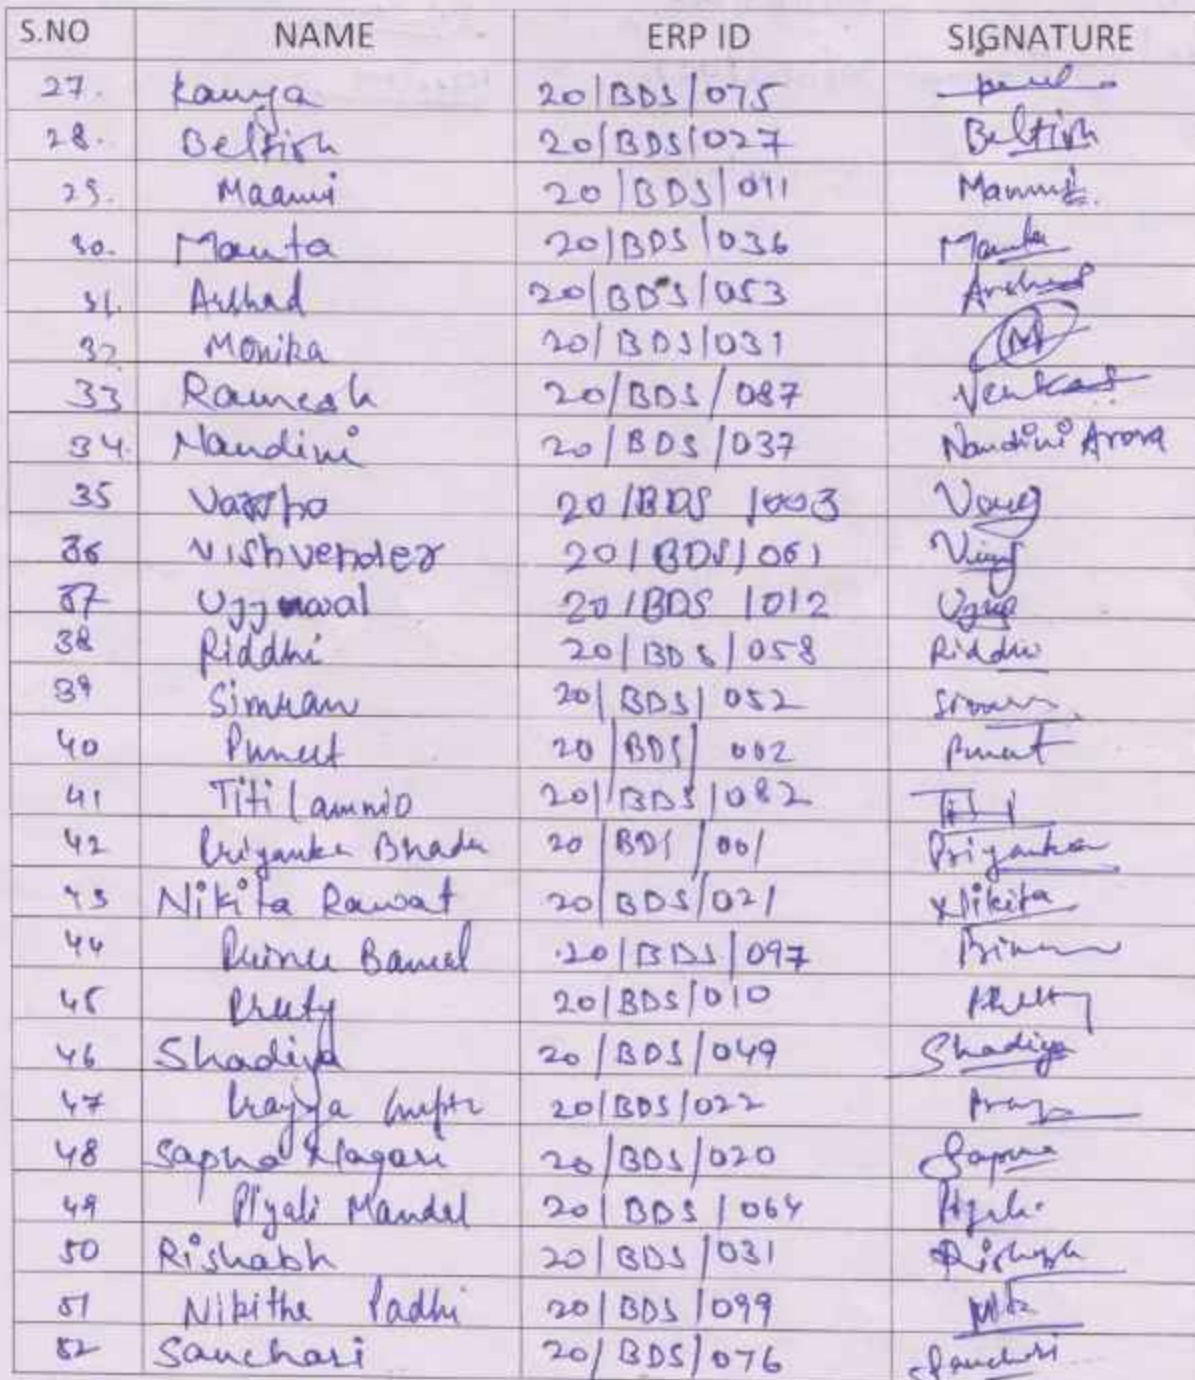 S.NO NAME ERP ID SIGNATURE
27. Kavya 20/BDS/075
28. Beltish 20/BDS/027 Beltish
29. Maanvi 20/BDS/011 Maanvi
30. Mamta 20/BDS/036 Mamta
31. Arshad 20/BDS/053 Arshad
32 Monika 20/BDS/031 M
33 Ramesh 20/BDS/087 Venkat
34. Nandini 20/BDS/037 Nandini Arora
35 20/BDS/003
36 Vishvender 20/BDS/061
37 Ujjwal 20/BDS/012
38 Riddhi 20/BDS/058 Riddhi
39 Simran 20/BDS/052 Simran
40 Puneet 20/BDS/002 Puneet
41 Titi 20/BDS/082 Titi
42 Priyanka Bhadu 20/BDS/001 Priyanka
43 Nikita Rawat 20/BDS/021 Nikita
44 Prince Bansal 20/BDS/097
45 Preety 20/BDS/010 Preety
46 Shadiya 20/BDS/049 Shadiya
47 Prayga Gupta 20/BDS/022
48 Sapna Nagari 20/BDS/020 Sapna
49 Piyali Mandal 20/BDS/064
50 Rishabh 20/BDS/031 Rishabh
51 Nikitha Padhi 20/BDS/099
52 Sanchari 20/BDS/076 Sanchari